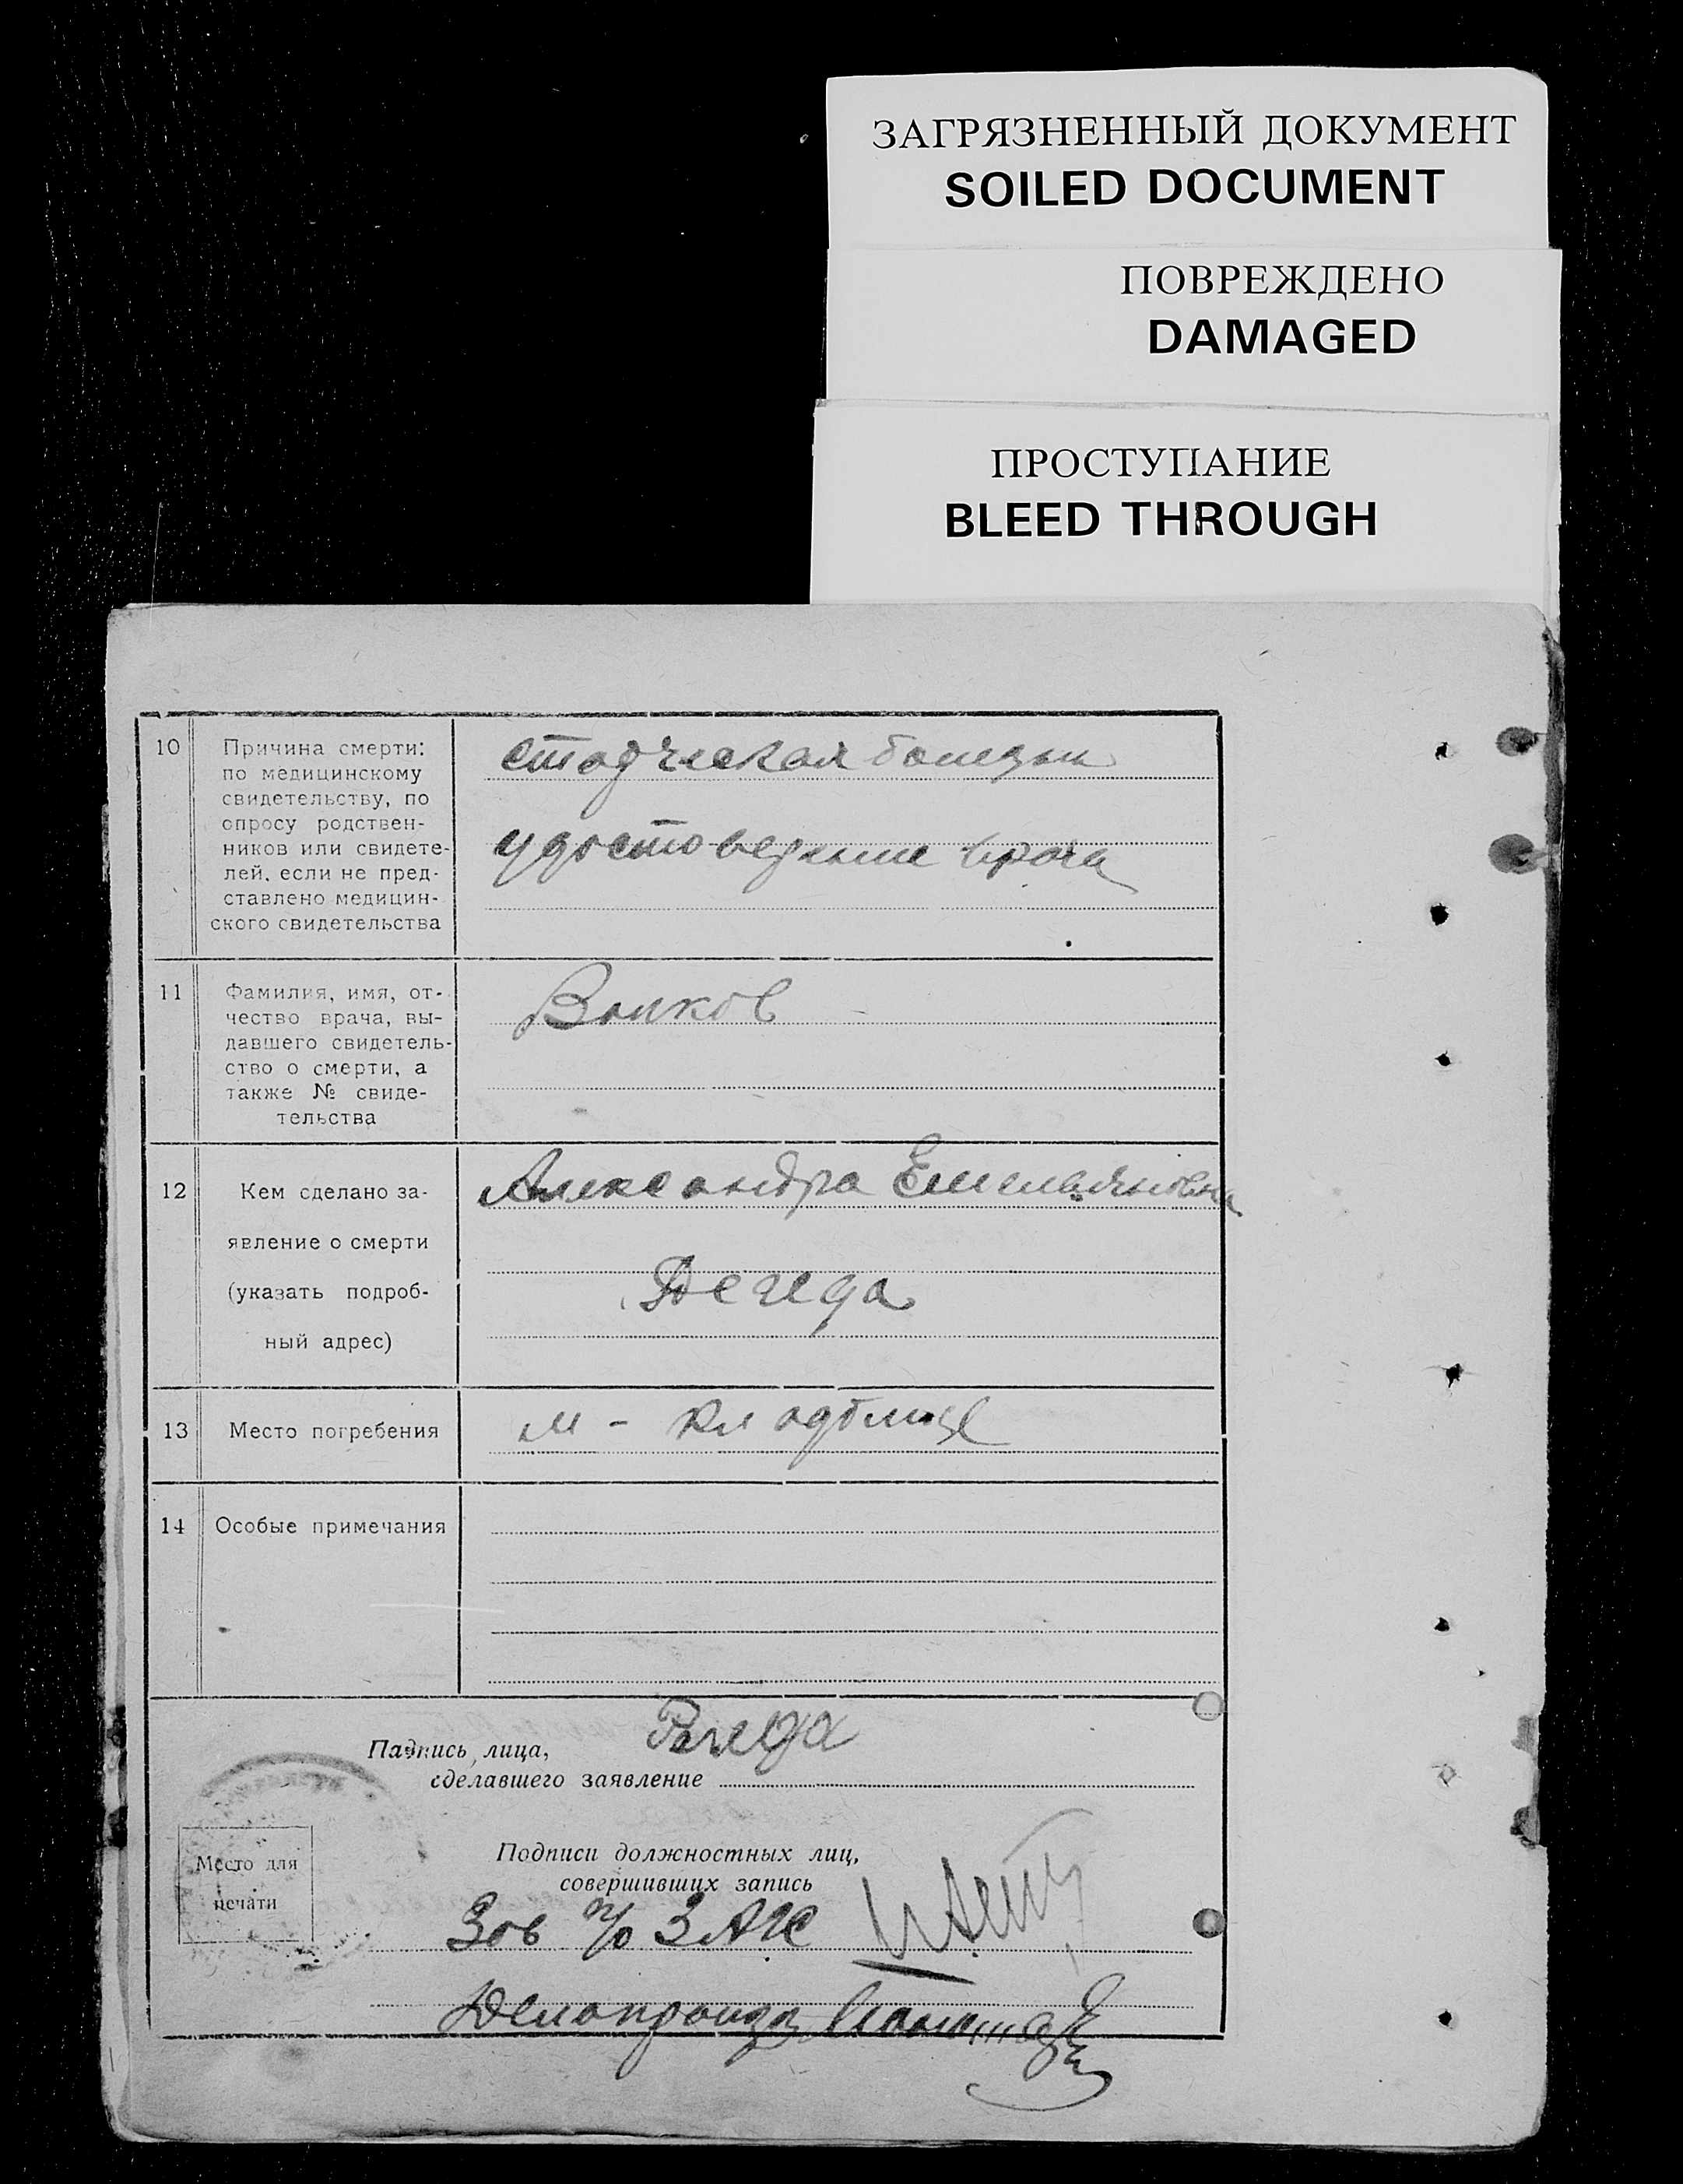 ЗАГРЯЗНЕННЫЙ ДОКУМЕНТ
SOILED DOCUMENT
ПОВРЕЖДЕНО
DAMAGED
ПРОСТУПАНИЕ
BLEED THROUGH
10
Причина смерти:
по медицинскому
свидетельству, по
опросу родствен-
ников или свидете-
лей, если не пред-
ставлено медицин-
ского свидетельства
болезнь
врача
11
Фамилия, имя, от-
чество врача, вы-
давшего свидетель-
ство о смерти, а
также № свиде-
тельства
Волков
12
Кем сделано за-
явление о смерти
(указать подроб-
ный адрес)
Александра Емельяновна
13
Место погребения
м - кладбище
14
Особые примечания
Подпись лица,
сделавшего заявление
Место для
печати
Подписи должностных лиц,
совершивших запись
Зав п/о ЗАГС
Делопроизв